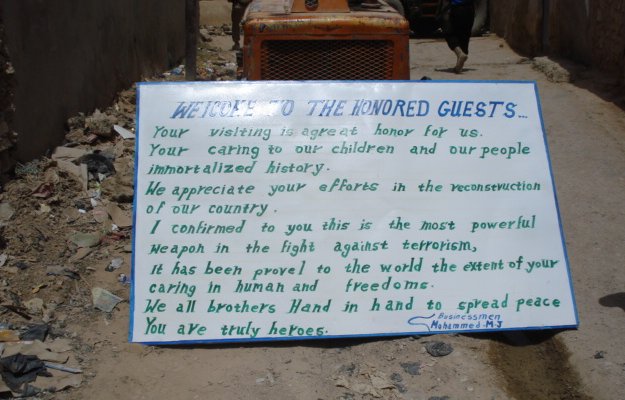 WELCOME TO THE HONORED GUESTS...
Your visiting is agreat honor for us.
Your caring to our children and our people
immortalized history.
We appreciate your efforts in the reconstruction
of our country.
I confirmed to you this is the most powerful
weapon in the fight against terrorism,
It has been provel to the world the extent of your
caring in human and freedoms.
We all brothers Hand in hand to spread peace
You are truly heroes.
Businessmen
Mohammed-M-J